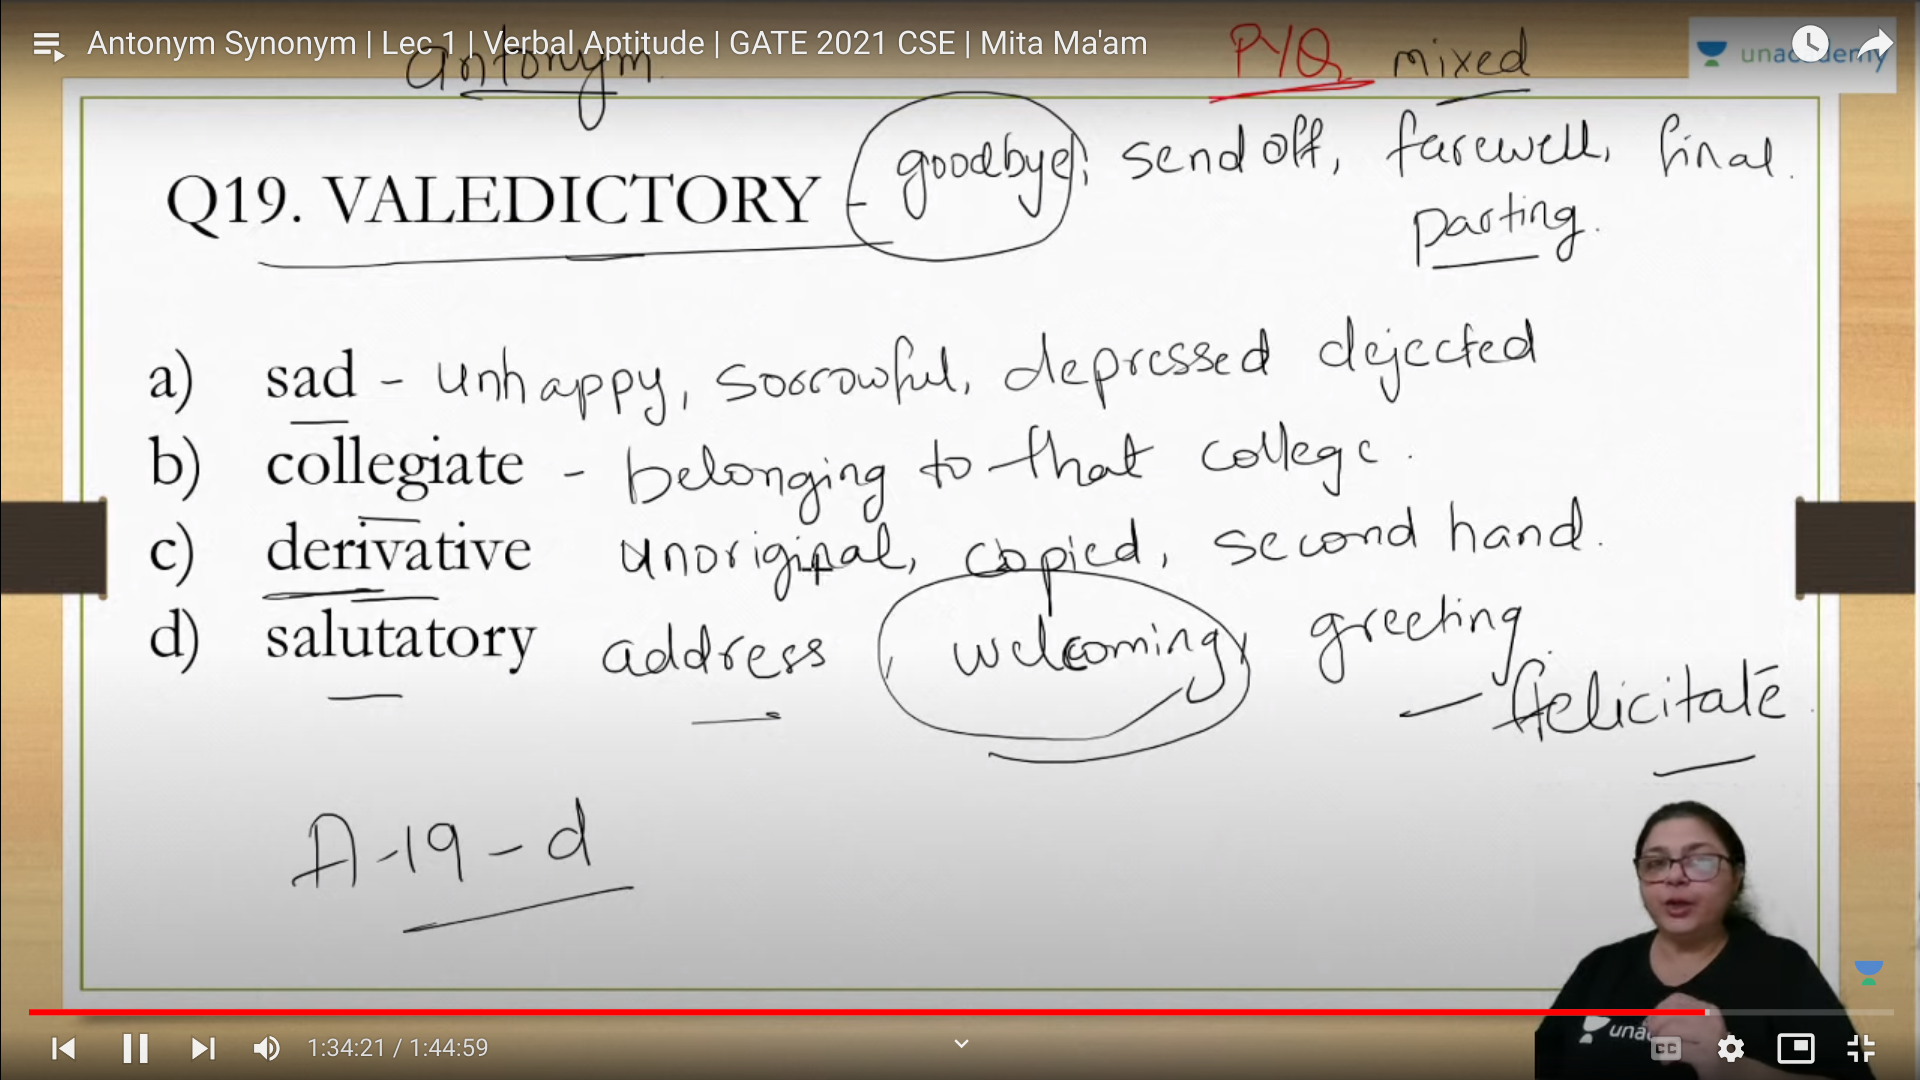 Antonym Synonym | Lec 1 | Verbal Aptitude | GATE 2021 CSE | Mita Ma'am
antonym
PYQ mixed
unacademy
Q19. VALEDICTORY - goodbye, send off, farewell, final.
parting.
a) sad - unhappy, sorrowful, depressed dejected
b) collegiate - belonging to that college.
c) derivative unoriginal, copied, second hand.
d) salutatory address welcoming, greeting
- felicitate
A-19-d
una
1:34:21 / 1:44:59
CC